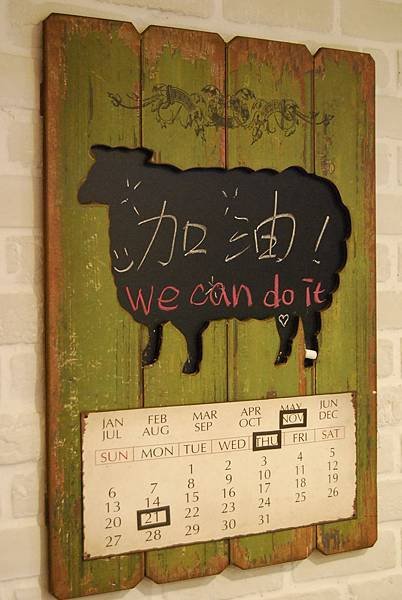 加油!
we can do it
JAN FEB MAR APR MAY JUN
JUL AUG SEP OCT NOV DEC
SUN MON TUE WED THU FRI SAT
1 2 3 4 5
6 7 8 9 10 11 12
13 14 15 16 17 18 19
20 21 22 23 24 25 26
27 28 29 30 31